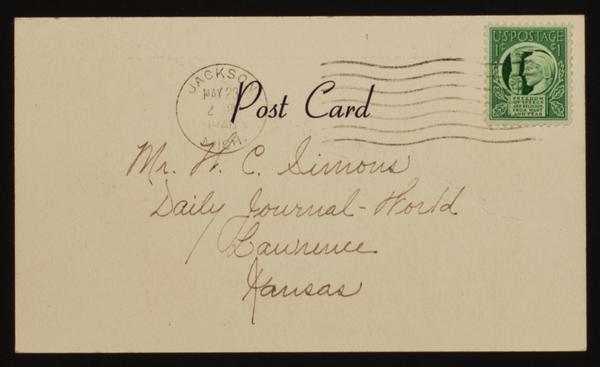 U.S. POSTAGE
1¢ 1¢
FREEDOM
OF SPEECH
AND RELIGION
FROM WANT
AND FEAR
JACKSON
MAY 29
MICH.
Post Card
Mr. W. C. Simons
Daily Journal-World
Lawrence
Kansas